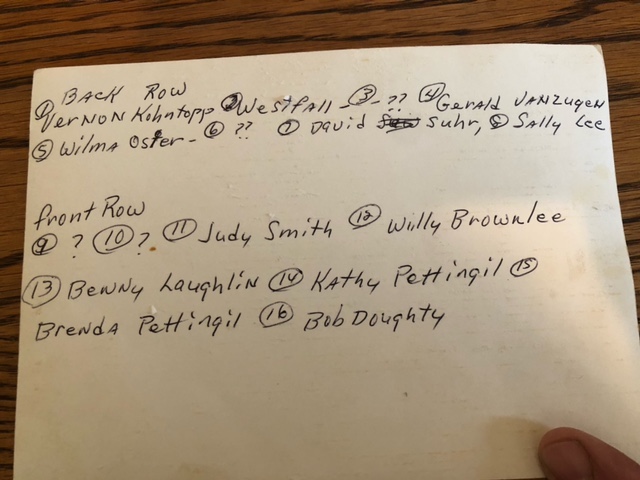 Back Row
① Vernon Kohntopp ② Westfall - ③ - ?? ④ Gerald VanZugen
⑤ Wilma Oster - ⑥ ?? ⑦ David Suhr, ⑧ Sally Lee
front Row
⑨ ? ⑩ ? ⑪ Judy Smith ⑫ Willy Brownlee
⑬ Benny Laughlin ⑭ Kathy Pettingil ⑮
Brenda Pettingil ⑯ Bob Doughty